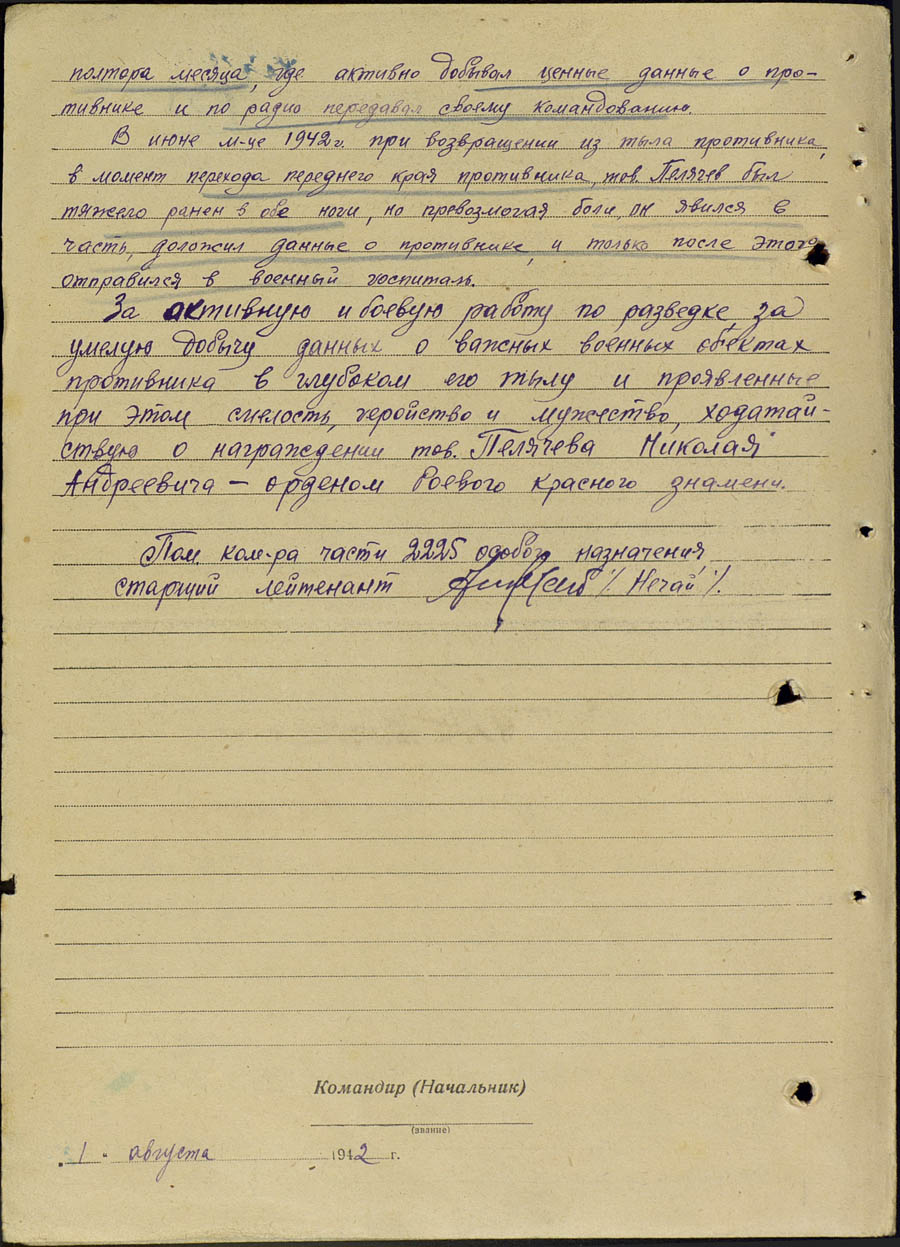 полтора месяца, где активно добывал ценные данные о про-
тивнике и по радио передавал своему командованию.
В июне м-це 1942г. при возвращении из тыла противника,
в момент перехода переднего края противника, тов. Пелячев был
тяжело ранен в обе ноги, но превозмогая боли, он явился в
часть, доложил данные о противнике, и только после этого
отправился в военный госпиталь.
За активную и боевую работу по разведке, за
умелую добычу данных о важных военных обектах
противника в глубоком его тылу и проявленные
при этом смелость, геройство и мужество, ходатай-
ствую о награждении тов. Пелячева Николая
Андреевича — орденом Боевого красного знамени.
Пом. ком-ра части 2225 особого назначения,
старший лейтенант /. Нечай /.
Командир (Начальник)
(звание)
„ 1 " августа 1942 г.